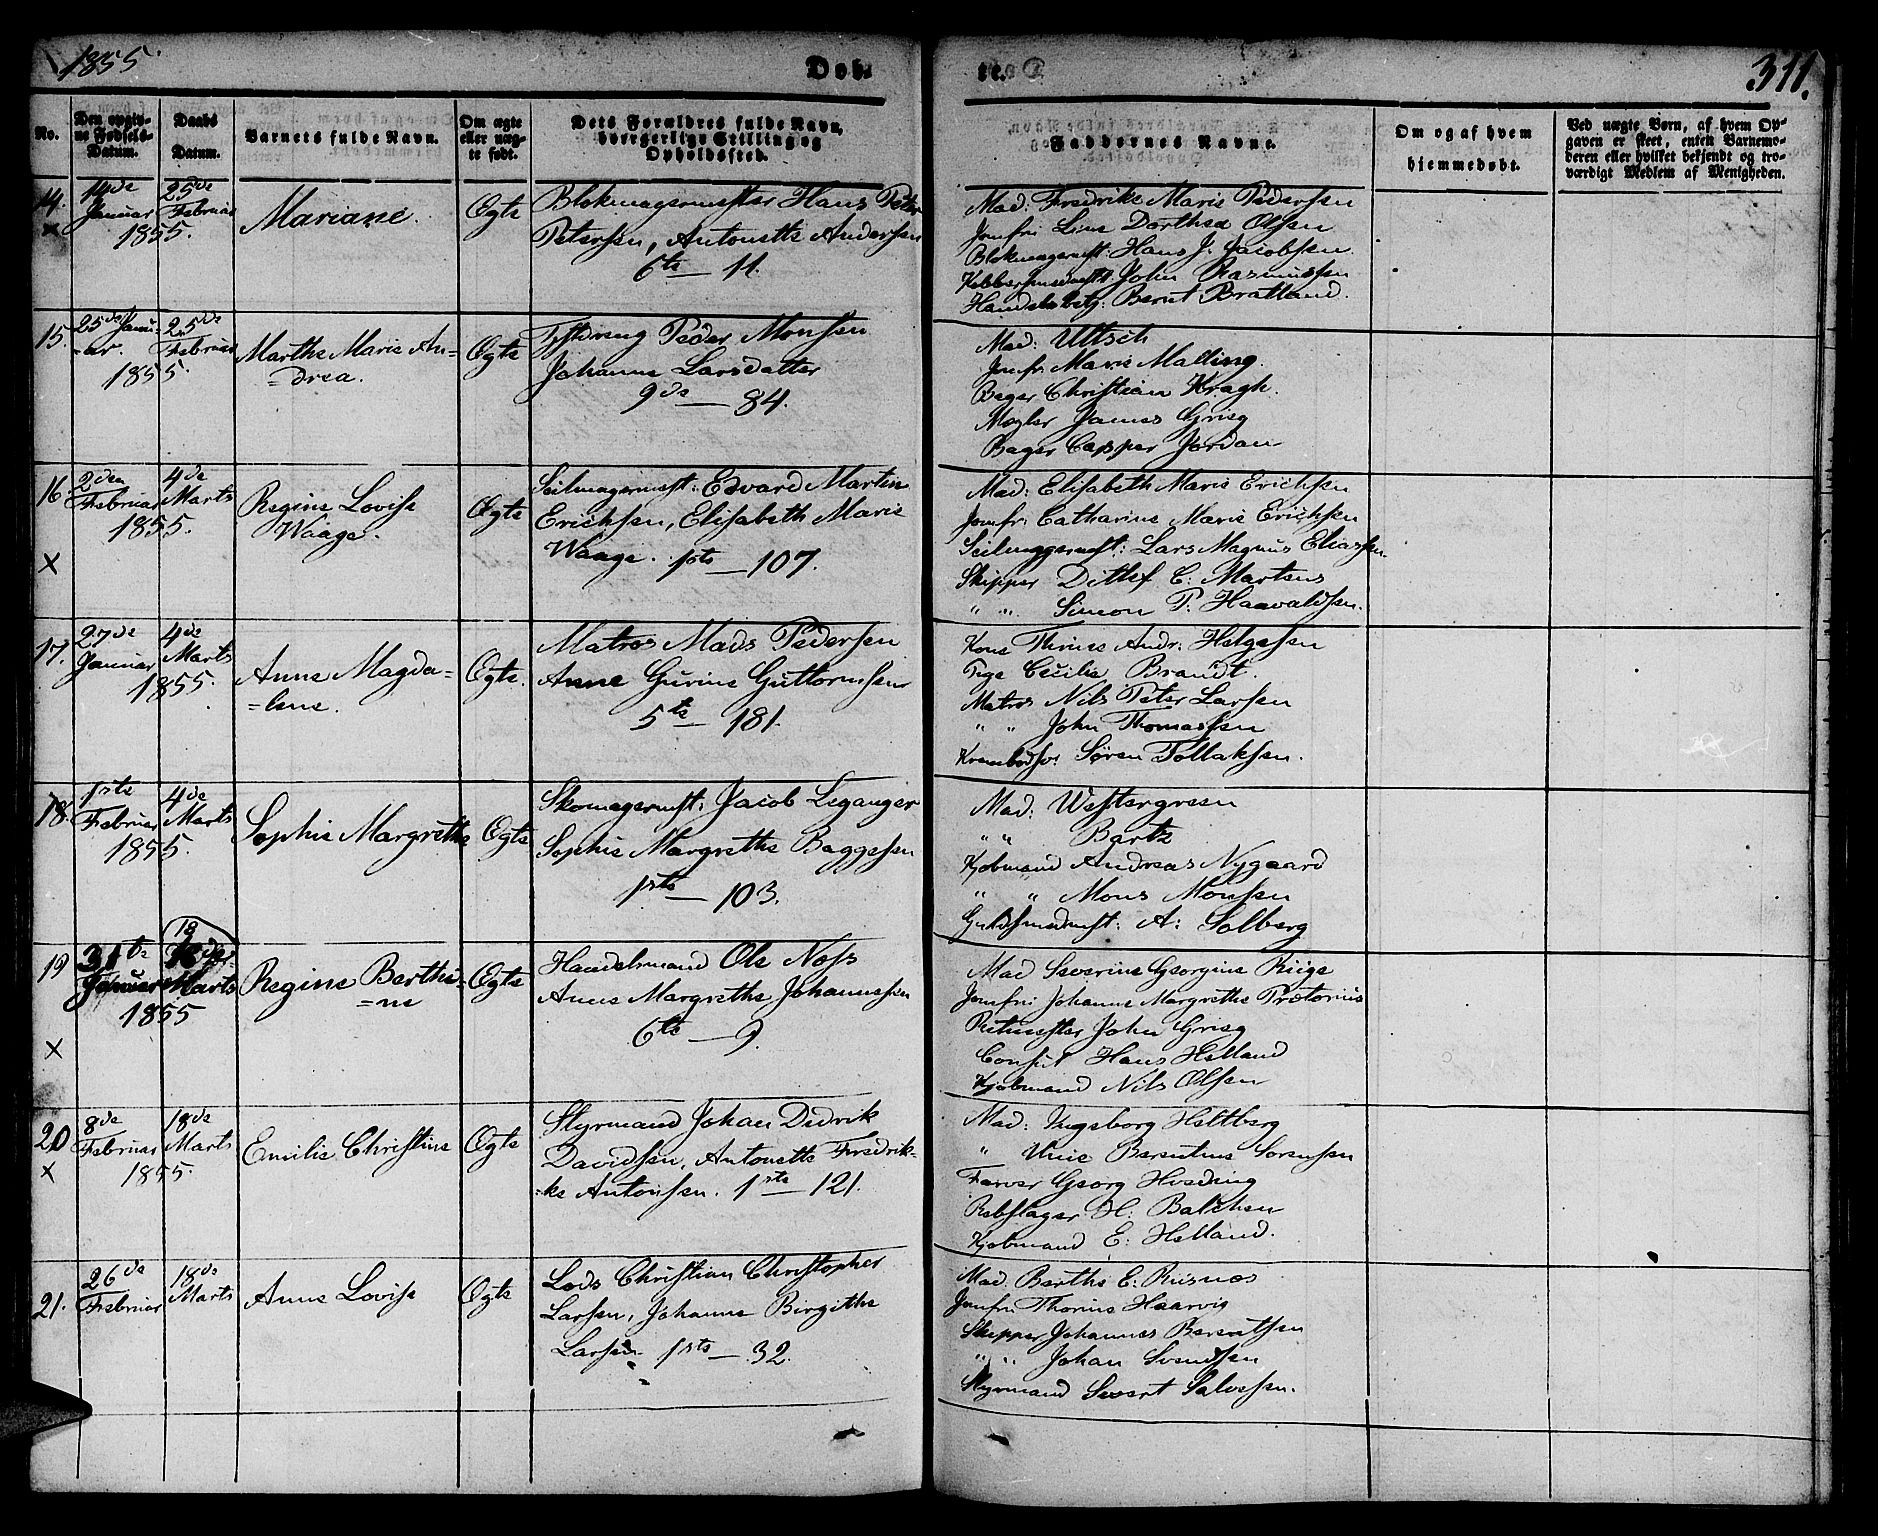 1855.
Døb-
te.
311.
No.
Den opgiv-
ne Fødsels-
Datum.
Daabs
Datum.
Barnets fulde Navn.
Om ægte
eller uæg-
te født.
Dets Forældres fulde Navn,
borgerlige Stilling og
Opholdssted.
Faddernes Navne.
Om og af hvem
hjemmedøbt.
Ved uægte Børn, af hvem Op-
gaven er skeet, enten Barnemo-
deren eller hvilket bekjendt og tro-
værdigt Medlem af Menigheden.
14.
14de
Januar
25de
Februar
1855.
Mariane.
Ægte
Blokmagermester Hans Peter
Petersen, Antonette Andersen
6te — 11.
Mad: Fredrikke Marie Pedersen
Jomfru Line Dorthea Olsen
Blokmagermst: Hans J. Jacobsen
Kobbersmedmst: John Rasmussen
Handelsbetj: Bernt Bratland.
15.
25de Janu-
ar.
25de
Februar
1855.
Marthe Marie An=
=drea.
Ægte
Peder Monsen
Johanne Larsdatter
9de — 84.
Mad: Ultsch
Jomfr: Marie Malling.
Bager Christian Kragh.
Mægler James Grieg
Bager Casper Jordan
16
2den
Februar
4de
Marts
1855.
x
Regine Lovise
Waage.
Ægte
Seilmagermst: Edvard Martin
Erichsen, Elisabeth Marie
Waage. 1ste — 107.
Mad: Elisabeth Marie Erichsen
Jomfr: Catharine Marie Erichsen
Seilmagermst: Lars Magnus Eliassen
Skipper Ditlef C: Martens
" " Simon P: Haavaldsen.
17.
27de
Januar
4de
Marts
1855.
Anne Magda-
=lene.
Ægte.
Matros Mads Pedersen
Anne Gurine Guttormsen
5te — 181.
Kone Thrine Andr: Helgesen
Pige Cecilie Brandt.
Matros Nils Peter Larsen
" " John Thomassen
Søren Tollaksen.
18.
1ste
Februar
4de
Marts
1855.
Sophie Margrethe
Ægte
Skomagermst: Jacob Leganger
Sophie Margrethe Baggesen
1ste — 103.
Mad: Westergreen
" " Bartz
Kjøbmand Andreas Nygaard
" " Mons Monsen
Guldsmedmst: A: Solberg
19
31te
Januar
18
Marts
1855
x
Regine Berthi=
=ne
Ægte
Handelsmand Ole Næss
Anne Margrethe Johannessen
6te — 9.
Mad Severine Georgine Riige
Jomfru: Johanne Margrethe Prætorius
Ritmester John Grieg
Consul Hans Helland
Kjøbmand Nils Olsen
20
8de
Februar
18de
Marts
x
1855.
Emilie Christine
Ægte
Styrmand Johan Didrik
Davidsen, Antonette Fredrik-
=ke Antonsen. 1ste — 121.
Mad: Ingeborg Heltberg
" Unie Berentine Sorensen
Farver Georg Hveding
Rebslager H: Balchen
Kjøbmand E: Helland.
21.
26de
Februar
18de
Marts
Anne Lovise
Ægte
Lods Christian Christopher
Larsen, Johanne Birgithe
Larsen. 1ste — 32.
Mad: Berthe E: Risnæs
Jomfru Thorine Haarvig
Skipper Johannes Berentsen
" " Johan Svendsen
Styrmand Sivert Salvesen.